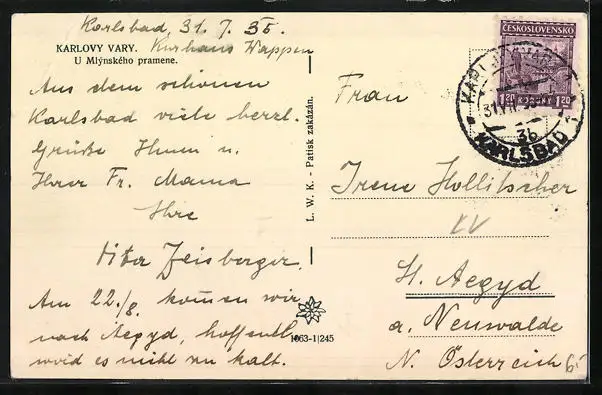 Karlsbad, 31. 7. 35.
KARLOVY VARY. Kurhaus Wappen
U Mlýnského pramene.
Aus dem schönen
Karlsbad viele herzl.
Grüße Ihnen u.
Ihrer Fr. Mama
Ihre
Zeisberger.
Am 22./8. kommen wir
nach Aegyd, hoffentl.
wird es nicht zu kalt.
L. W. K. - Patisk zakázán.
1063-1|245
ČESKOSLOVENSKO
1.20 KORUNY 1.20
KARLOVY VARY
31.VII
3b
KARLSBAD
Frau
Irene Hollitscher
St. Aegyd
a. Neuwalde
N. Österreich